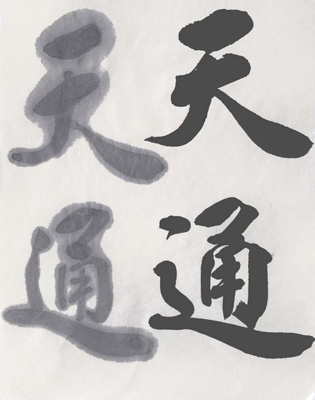 天天
通通